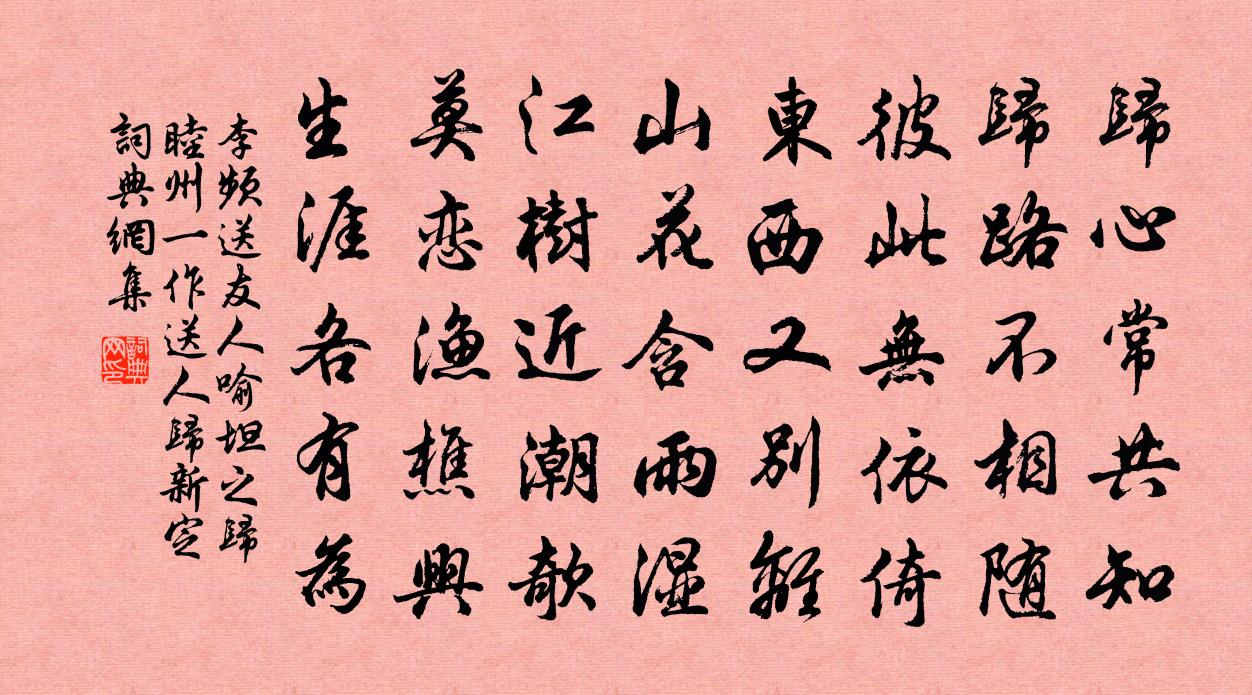 歸心常共知
歸路不相随
彼此無依倚
東西又別離
山花含雨濕
江樹近潮欹
莫恋漁樵興
生涯各有為
李頻送友人喻坦之歸
睦州一作送人歸新定
詞典網集
詞典網印